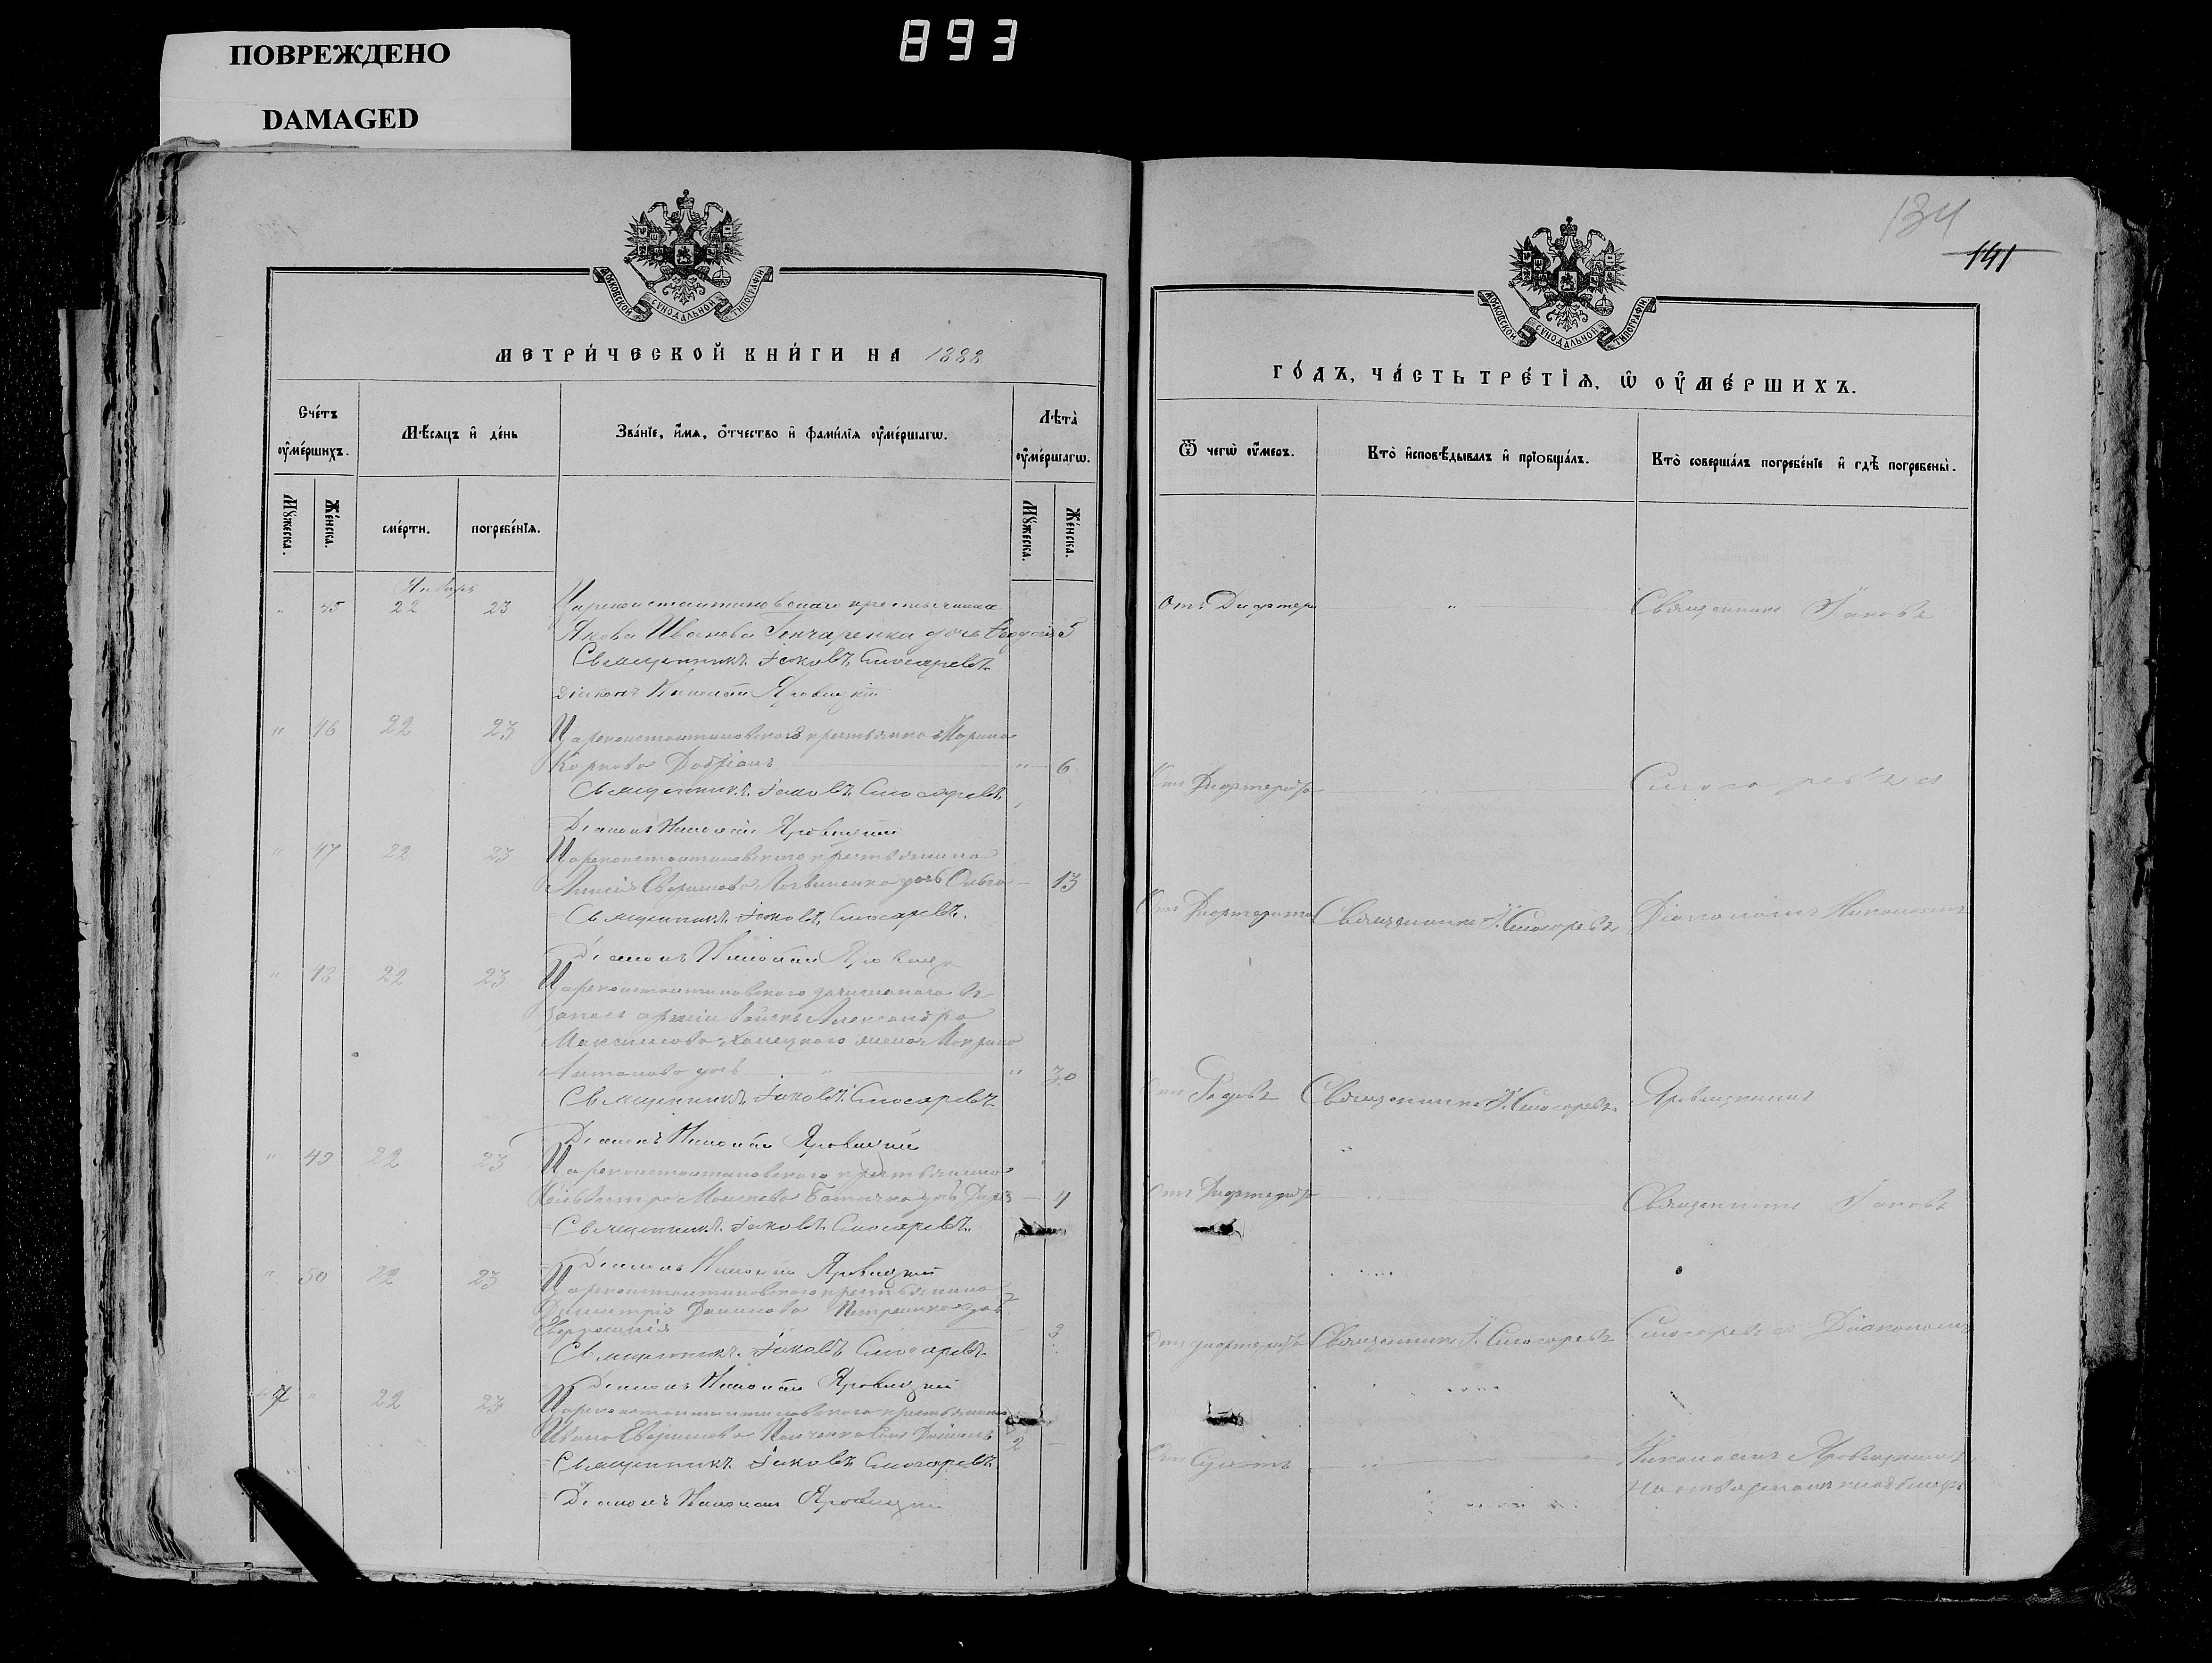 893
ПОВРЕЖДЕНО
DAMAGED
МОСКОВСКОЙ СѴНОДАЛЬНОЙ ТИПОГРАФІИ
МЕТРИ́ЧЕСКОЙ КНИ́ГИ НА 1888
Сче́тъ ᲂу҆ме́ршихъ.
Мѣ́сяцъ и҆ де́нь
Зва́нїе, и҆́мя, ѻ҆́тчество и҆ фами́лїя ᲂу҆ме́ршагѡ.
Лѣта̀ ᲂу҆ме́ршагѡ.
Мꙋ́жеска.
Же́нска.
сме́рти.
погребе́нїя.
Мꙋ́жеска.
Же́нска.
Январь
" 45 22 23 Цареконстантиновскаго крестьянина
Якова Иванова Гончаренка дочь Ѳеодосія 5
Священникъ Іаковъ Слюсаревъ
Діаконъ Николай Яровицкій
" 46 22 23 Цареконстантиновская крестьянка Марина
Карпова " 6
Священникъ Іаковъ Слюсаревъ
Діаконъ Николай Яровицкій
" 47 22 23 Цареконстантиновскаго крестьянина
Евфимова Литвиненка дочь Ольга 13
Священникъ Іаковъ Слюсаревъ.
Діаконъ Николай Яровицк
" 48 22 23 Цареконстантиновскаго въ
запасъ арміи Александра
Максимова жена
Антонова дочь " " 30
Священникъ Іаковъ Слюсаревъ
Діаконъ Николай Яровицкій
" 49 22 23 Цареконстантиновскаго крестьянина
Сильвестра Моисеева дочь 4
Священникъ Іаковъ Слюсаревъ.
Діаконъ Николай Яровицкій
" 50 22 23 Цареконстантиновскаго крестьянина
Димитрія Данилова Петренка дочь
Евфросинія 3
Священникъ Іаковъ Слюсаревъ
Діаконъ Николай Яровицкій
" 22 23 Цареконстантиновскаго крестьянина
Ивана Евфимова сынъ Даніилъ 2
Священникъ Іаковъ Слюсаревъ.
Діаконъ Николай Яровицкі
134
141
МОСКОВСКОЙ СѴНОДАЛЬНОЙ ТИПОГРАФІИ
ГО́ДЪ, ЧА́СТЬ ТРЕ́ТЇѦ, Ѡ҆ ОУ҆МЕ́РШИХЪ.
Ѿ чегѡ̀ ᲂу҆́меръ.
Кто̀ и҆сповѣ́дывалъ и҆ прїобща́лъ.
Кто̀ соверша́лъ погребе́нїе и҆ гдѣ̀ погребены̀.
Отъ Дифтери " Священникъ Іаковъ
Отъ Дифтерита Слюсаревъ и
Отъ Дифтерита Священникъ І. Слюсаревъ Діакономъ Николаемъ
Отъ Родовъ Священникъ І. Слюсаревъ Яровицкимъ
Отъ Дифтерита Священникъ Іаковъ
Отъ дифтерита Священникъ І. Слюсаревъ Слюсаревъ и Діакономъ
Отъ Сухотъ Николаемъ Яровицкимъ
На отведенномъ кладбищѣ